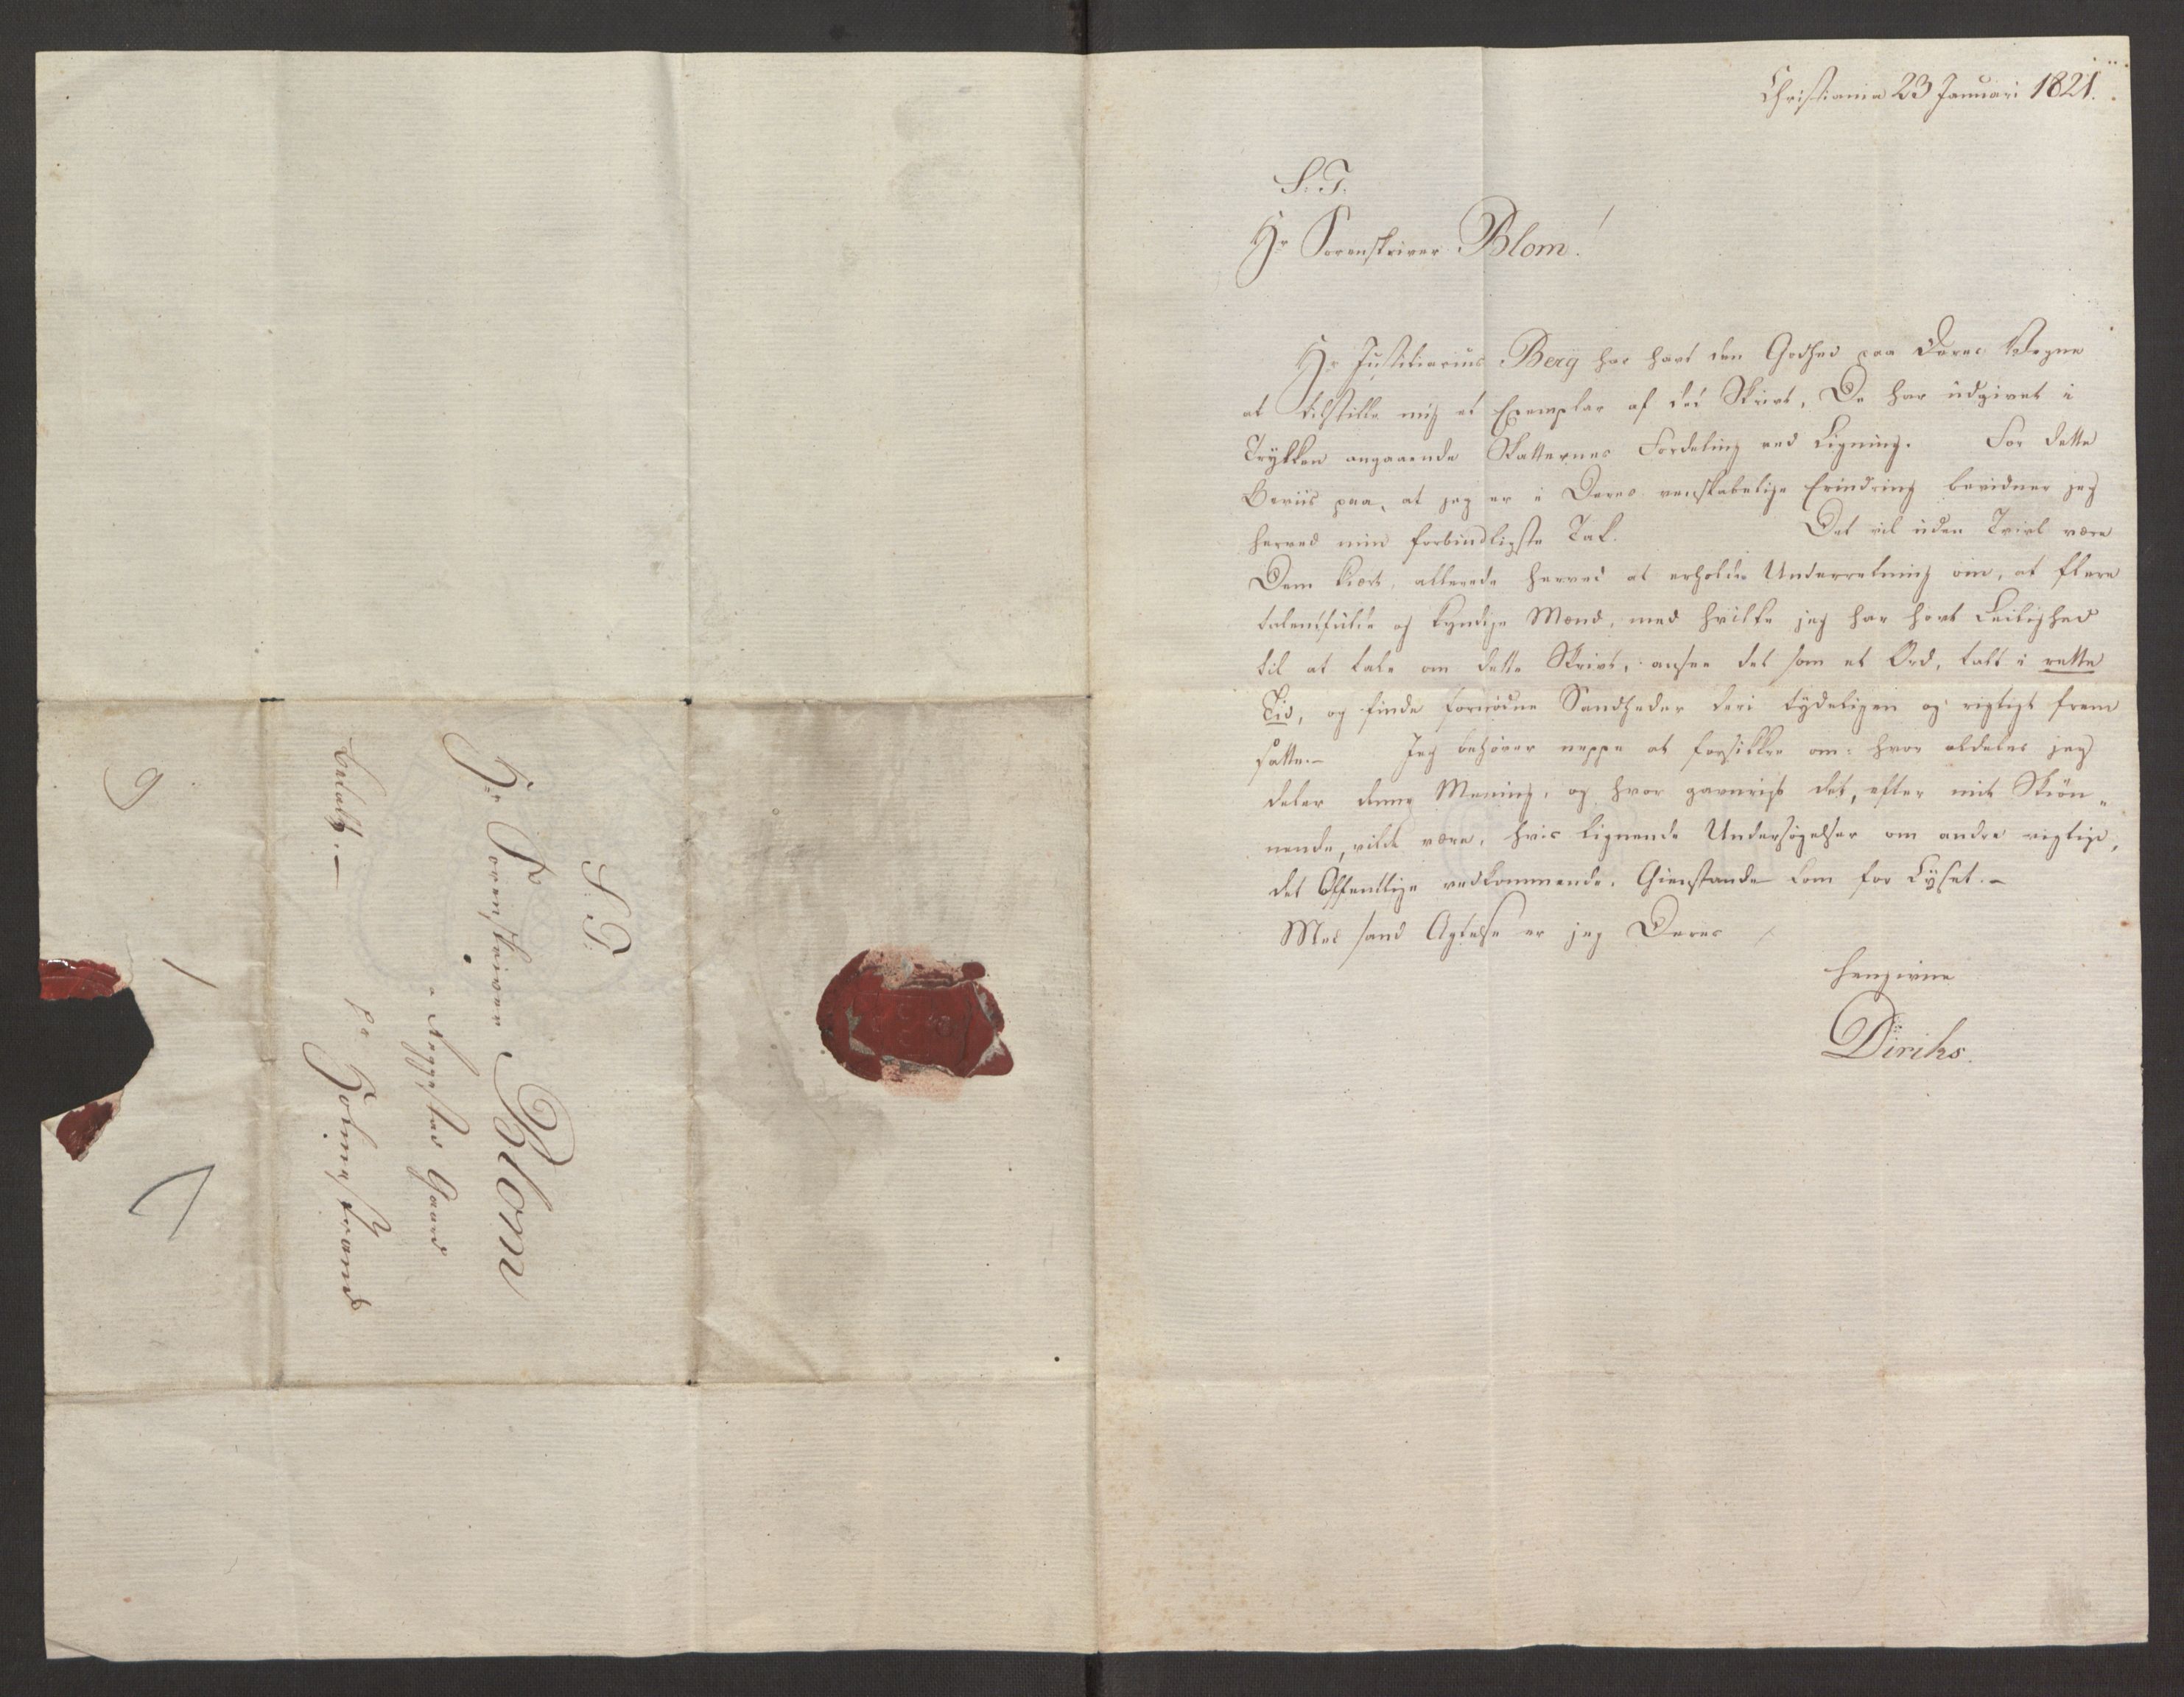 Christiania 23 Januari 1821.
S. T.
Hr Sorenskriver Blom!
Hr Justitiarius Berg har havt den Godhed paa Deres Vegne
at tilstille mig et Exemplar af det Skrivt, De har udgivet i
Trykken angaaende Skatternes Fordeling ved Ligning. For dette
Beviis paa, at jeg er i Deres venskabelige Erindring bevidner jeg
herved min forbindtligste Tak. Det vil uden Tvivl være
Dem kiært, allerede herved at erholde Underretning om, at flere
talentfulde og kyndige Mænd, med hvilke jeg har havt Leilighed
til at tale om dette Skrivt, ansee det som et Ord, talt i rette
Tid, og finde fornödne Sandheder deri tydeligen og rigtigt frem
satte.- Jeg behöver neppe at forsikkre om: hvor aldeles jeg
deler denne Mening, og hvor gavnrigt det, efter mit Skiön„
nende, vilde være, hvis lignende Undersögelser om andre vigtige,
det Offentlige vedkommende, Gienstande kom for Lyset.-
Med sand Agtelse er jeg Deres
hengivne
Diriks.
S. T.
Hr Sorenskriver Blom
a Noggestad Gaard
pr Holmestrand
betalt.-
9